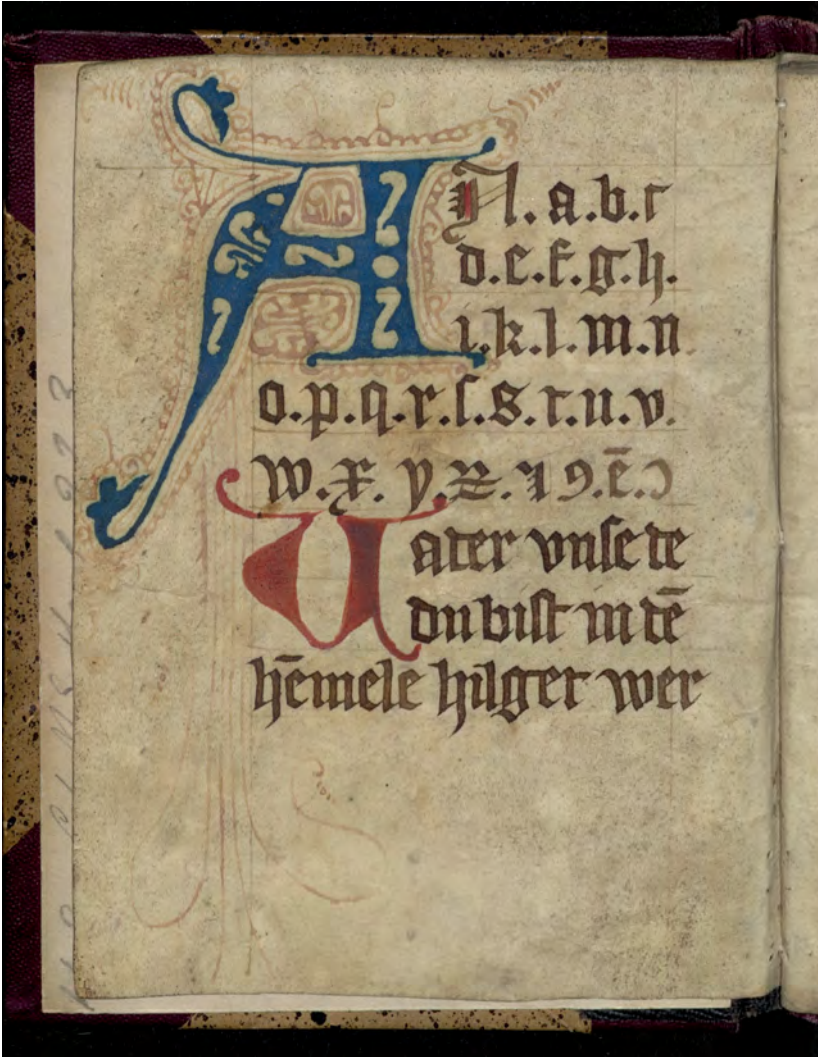 A Al. a. b. c
d. e. f. g. h.
i. k. l. m. n
o. p. q. r. ſ. s. t. u. v.
w. x. y. z. ⁊ 9. ē. ɔ
Vater vnſe de
du biſt in dē
hēmele hilget wer